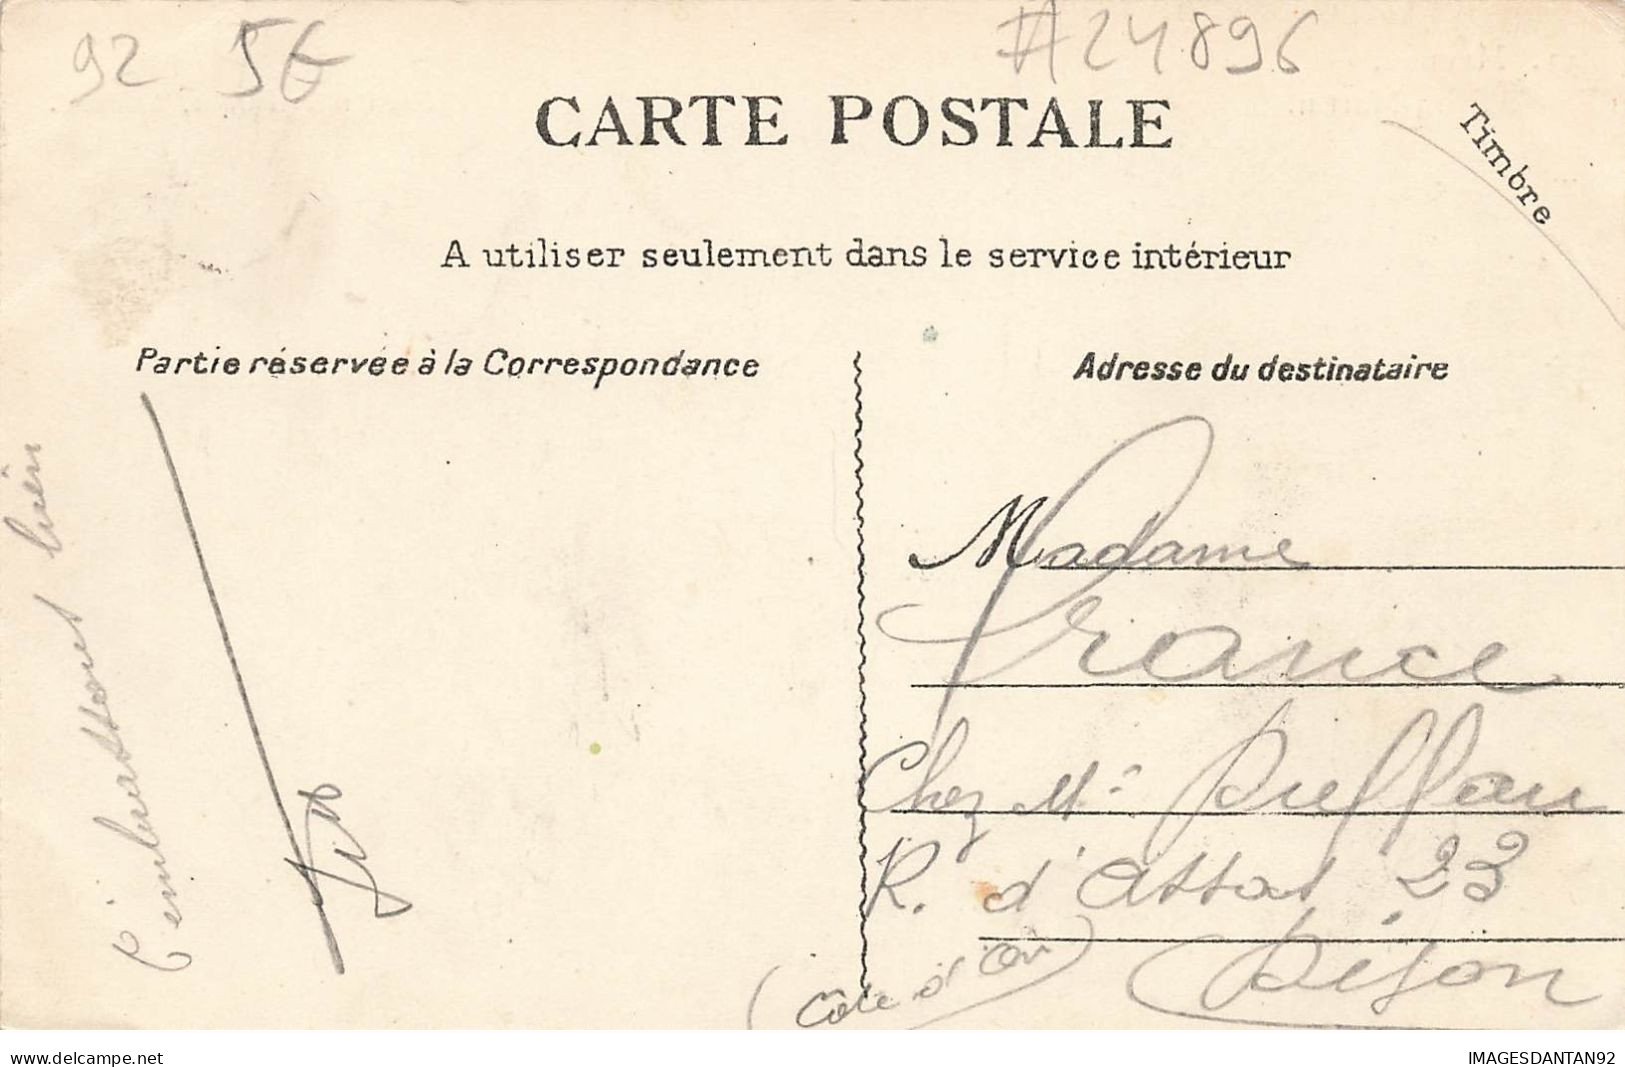 92 5€ #24896
CARTE POSTALE
Timbre
A utiliser seulement dans le service intérieur
Partie réservée à la Correspondance
Adresse du destinataire
Madame
France
Chez Mr
R. d'Assas 23
Dijon
(Côte d'Or)
bien
delcampe.net
IMAGESDANTAN92